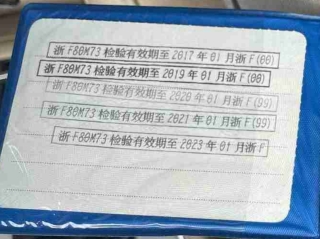 浙F80M73检验有效期至2017年01月浙F(00)
浙F80M73检验有效期至2019年01月浙F(00)
浙F80M73检验有效期至2020年01月浙F(99)
浙F80M73检验有效期至2021年01月浙F(99)
浙F80M73检验有效期至2023年01月浙F